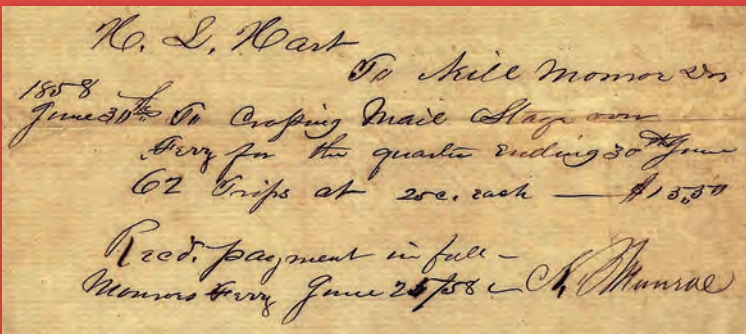 H. L. Hart
To Neill Monroe Dr
1858
June 30th To Crossing Mail Stage over
Ferry for the quarter Ending 30th June
62 Trips at 25c. each — $15,50
Recd. payment in full -
Monroes Ferry June 25/58 N. Munroe